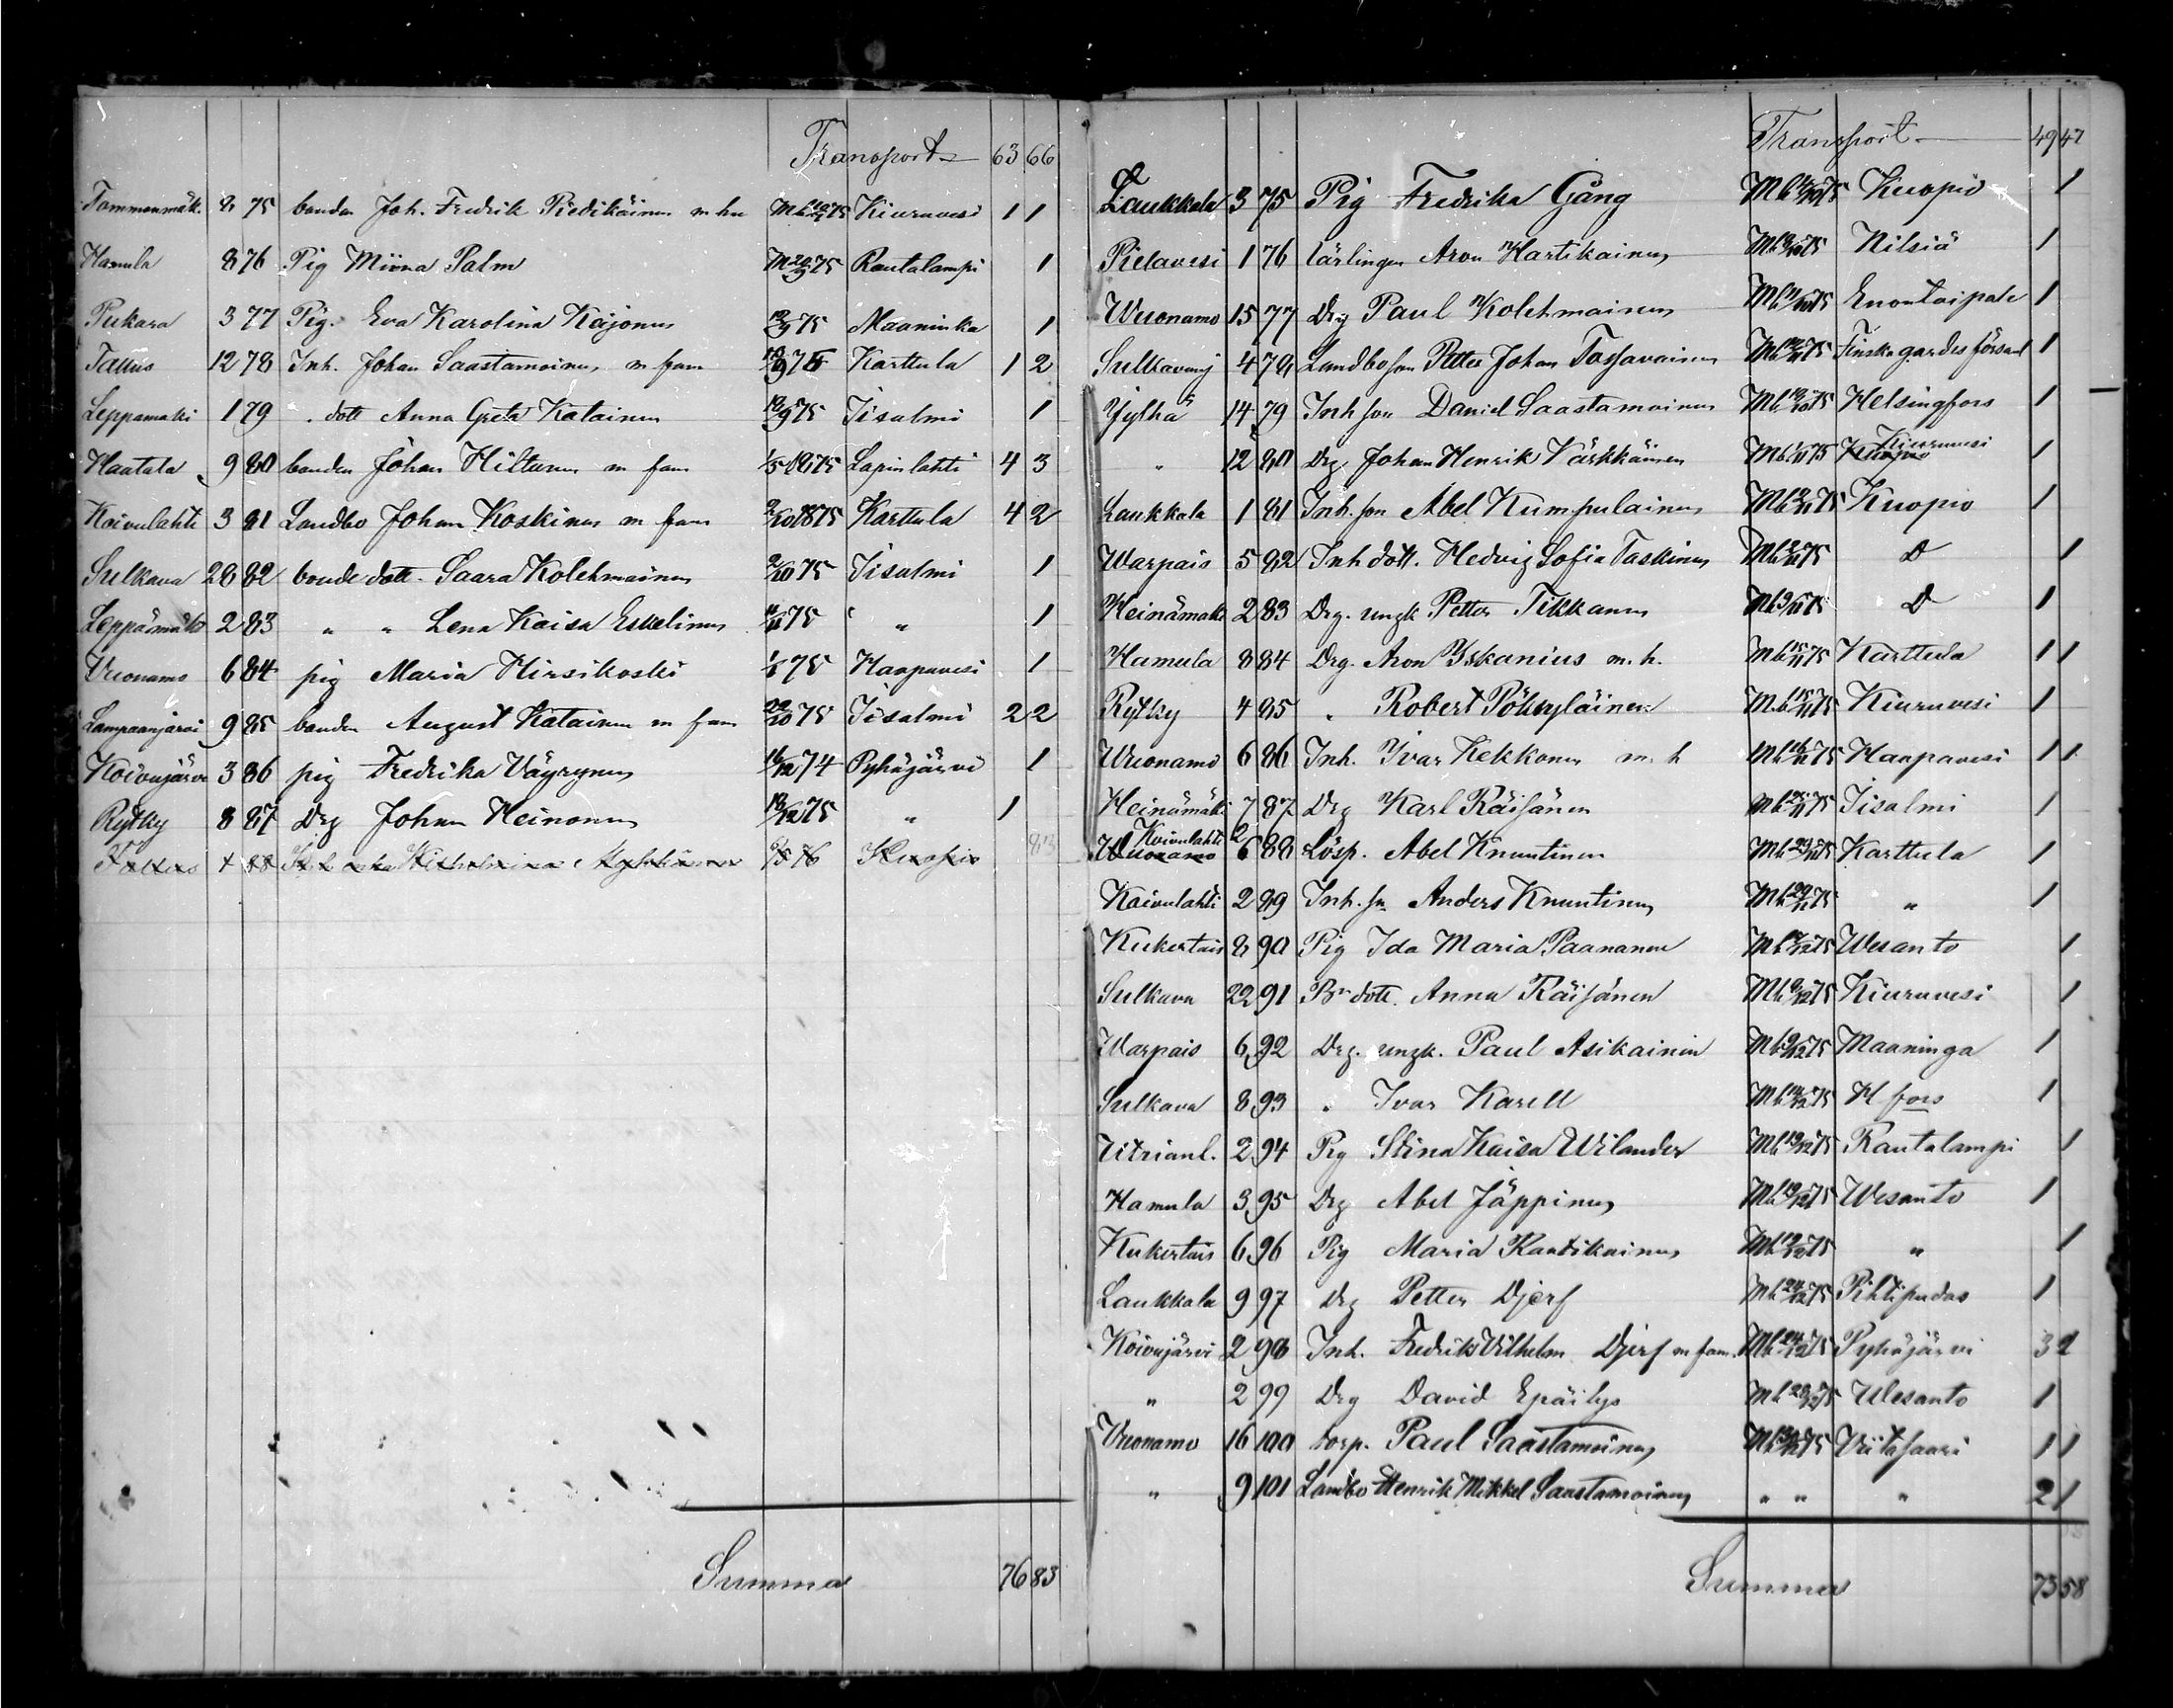 Transport 63 66
Tommonmäk. 8 75 bonden Joh. Fredrik Piedikäinen m hu Mb 75 Kiuruvesi 1 1
Hamula 8 76 Pig Miina Palm M 20/9 75 Rautalampi 1
Pukara 3 77 Pig. Eva Karolina Kajonus 75 Maaninka 1
Tallus 12 78 Inh. Johan Saastamoinen m fam 75 Karttula 1 2
Leppamäki 1 79 dott Anna Greta Katainen 75 Iisalmi 1
Haatala 9 80 bonden Johan Hiltunen m fam 1875 Lapinlahti 4 3
Koivulahti 3 81 Landbo Johan Koskinen m fam 2/10 1875 Karttula 4 2
Sulkava 28 82 bonde dott. Saara Kolehmainen 2/10 75 Iisalmi 1
Leppämäki 2 83 " " Lena Kaisa Eskelinen 75 " " 1
Vuonamo 6 84 pig Maria Hirsikoski 75 Haapavesi 1
Lampaanjärvi 9 85 bonden August Katainen m fam 22/10 75 Iisalmi 2 2
Koivujärvi 3 86 pig Fredrika Väyrynen 16/12 74 Pyhäjärvi 1
Rytky 8 87 Drg Johan Heinonen 75 " 1
Tallus 4 88 Wilhelmina 76 Kuopio
Summa 76 83
Transport 49 47
Laukkala 3 75 Pig Fredrika Gång Mb 75 Kuopio 1
Pielavesi 1 76 Lärlingen Aron Hartikainen Mb 75 Nilsiä 1
Wuonamo 15 77 Drg Paul Kolehmainen Mb 75 Enontaipale 1
Sulkavanj 4 78 Landboson Petter Johan Tossavainen Mb 75 Finska gardes församl 1
Jylhä 14 79 Inh son Daniel Saastamoinen Mb 75 Helsingfors 1
" 12 80 Drg Johan Henrik Kärkkäinen Mb 75 Kuopio Kiuruvesi 1
Laukkala 1 81 Inh. son Abel Kumpulainen Mb 75 Kuopio 1
Warpais 5 82 Inh dott. Hedvig Sofia Taskinen Mb 75 D 1
Heinämäki 2 83 Drg. ungk Petter Tikkanen Mb 75 D 1
Hamula 8 84 Drg. Aron Yskanius m. h. Mb 15/11 75 Karttula 1 1
Rytky 4 85 " Robert Pöhyläinen Mb 15/11 75 Kiuruvesi 1
Wuonamo 6 86 Inh. Ivar Kekkonen m h Mb 16/11 75 Haapavesi 1 1
Heinämäki 7 87 Drg Karl Räisänen Mb 75 Iisalmi 1
Wuonamo Koivulahti 2 6 88 Lösp. Abel Knuutinen Mb 75 Karttula 1
Koivulahti 2 89 Inh. sn Anders Knuutinen Mb 75 " 1
Kukertais 8 90 Pig Ida Maria Paananen Mb 75 Wesanto 1
Sulkava 22 91 Bn dott. Anna Räisänen Mb 75 Kiuruvesi 1
Warpais 6 92 Drg. ungk. Paul Asikainen Mb 75 Maaninga 1
Sulkava 8 93 " Ivar Karell Mb 75 H fors 1
Utrianl. 2 94 Pig Stina Kaisa Wilander Mb 75 Rautalampi 1
Hamula 3 95 Drg Abel Jäppinen Mb 75 Wesanto 1
Kukertais 6 96 Pig Maria Kautikainen Mb 75 " 1
Laukkala 9 97 Drg Petter Djerf Mb 24/12 75 Pihtipudas 1
Koivujärvi 2 98 Inh. Fredrik Vilhelm Djerf m fam. Mb 24/12 75 Pyhäjärvi 3 2
" 2 99 Drg David Epäilys Mb 75 Wesanto 1
Vuonamo 16 100 torp. Paul Saastamoinen Mb 75 Viitasaari 1 1
" 9 101 Landbo Henrik Mikkel Saastamoinen " " " 2 1
Summa 73 58